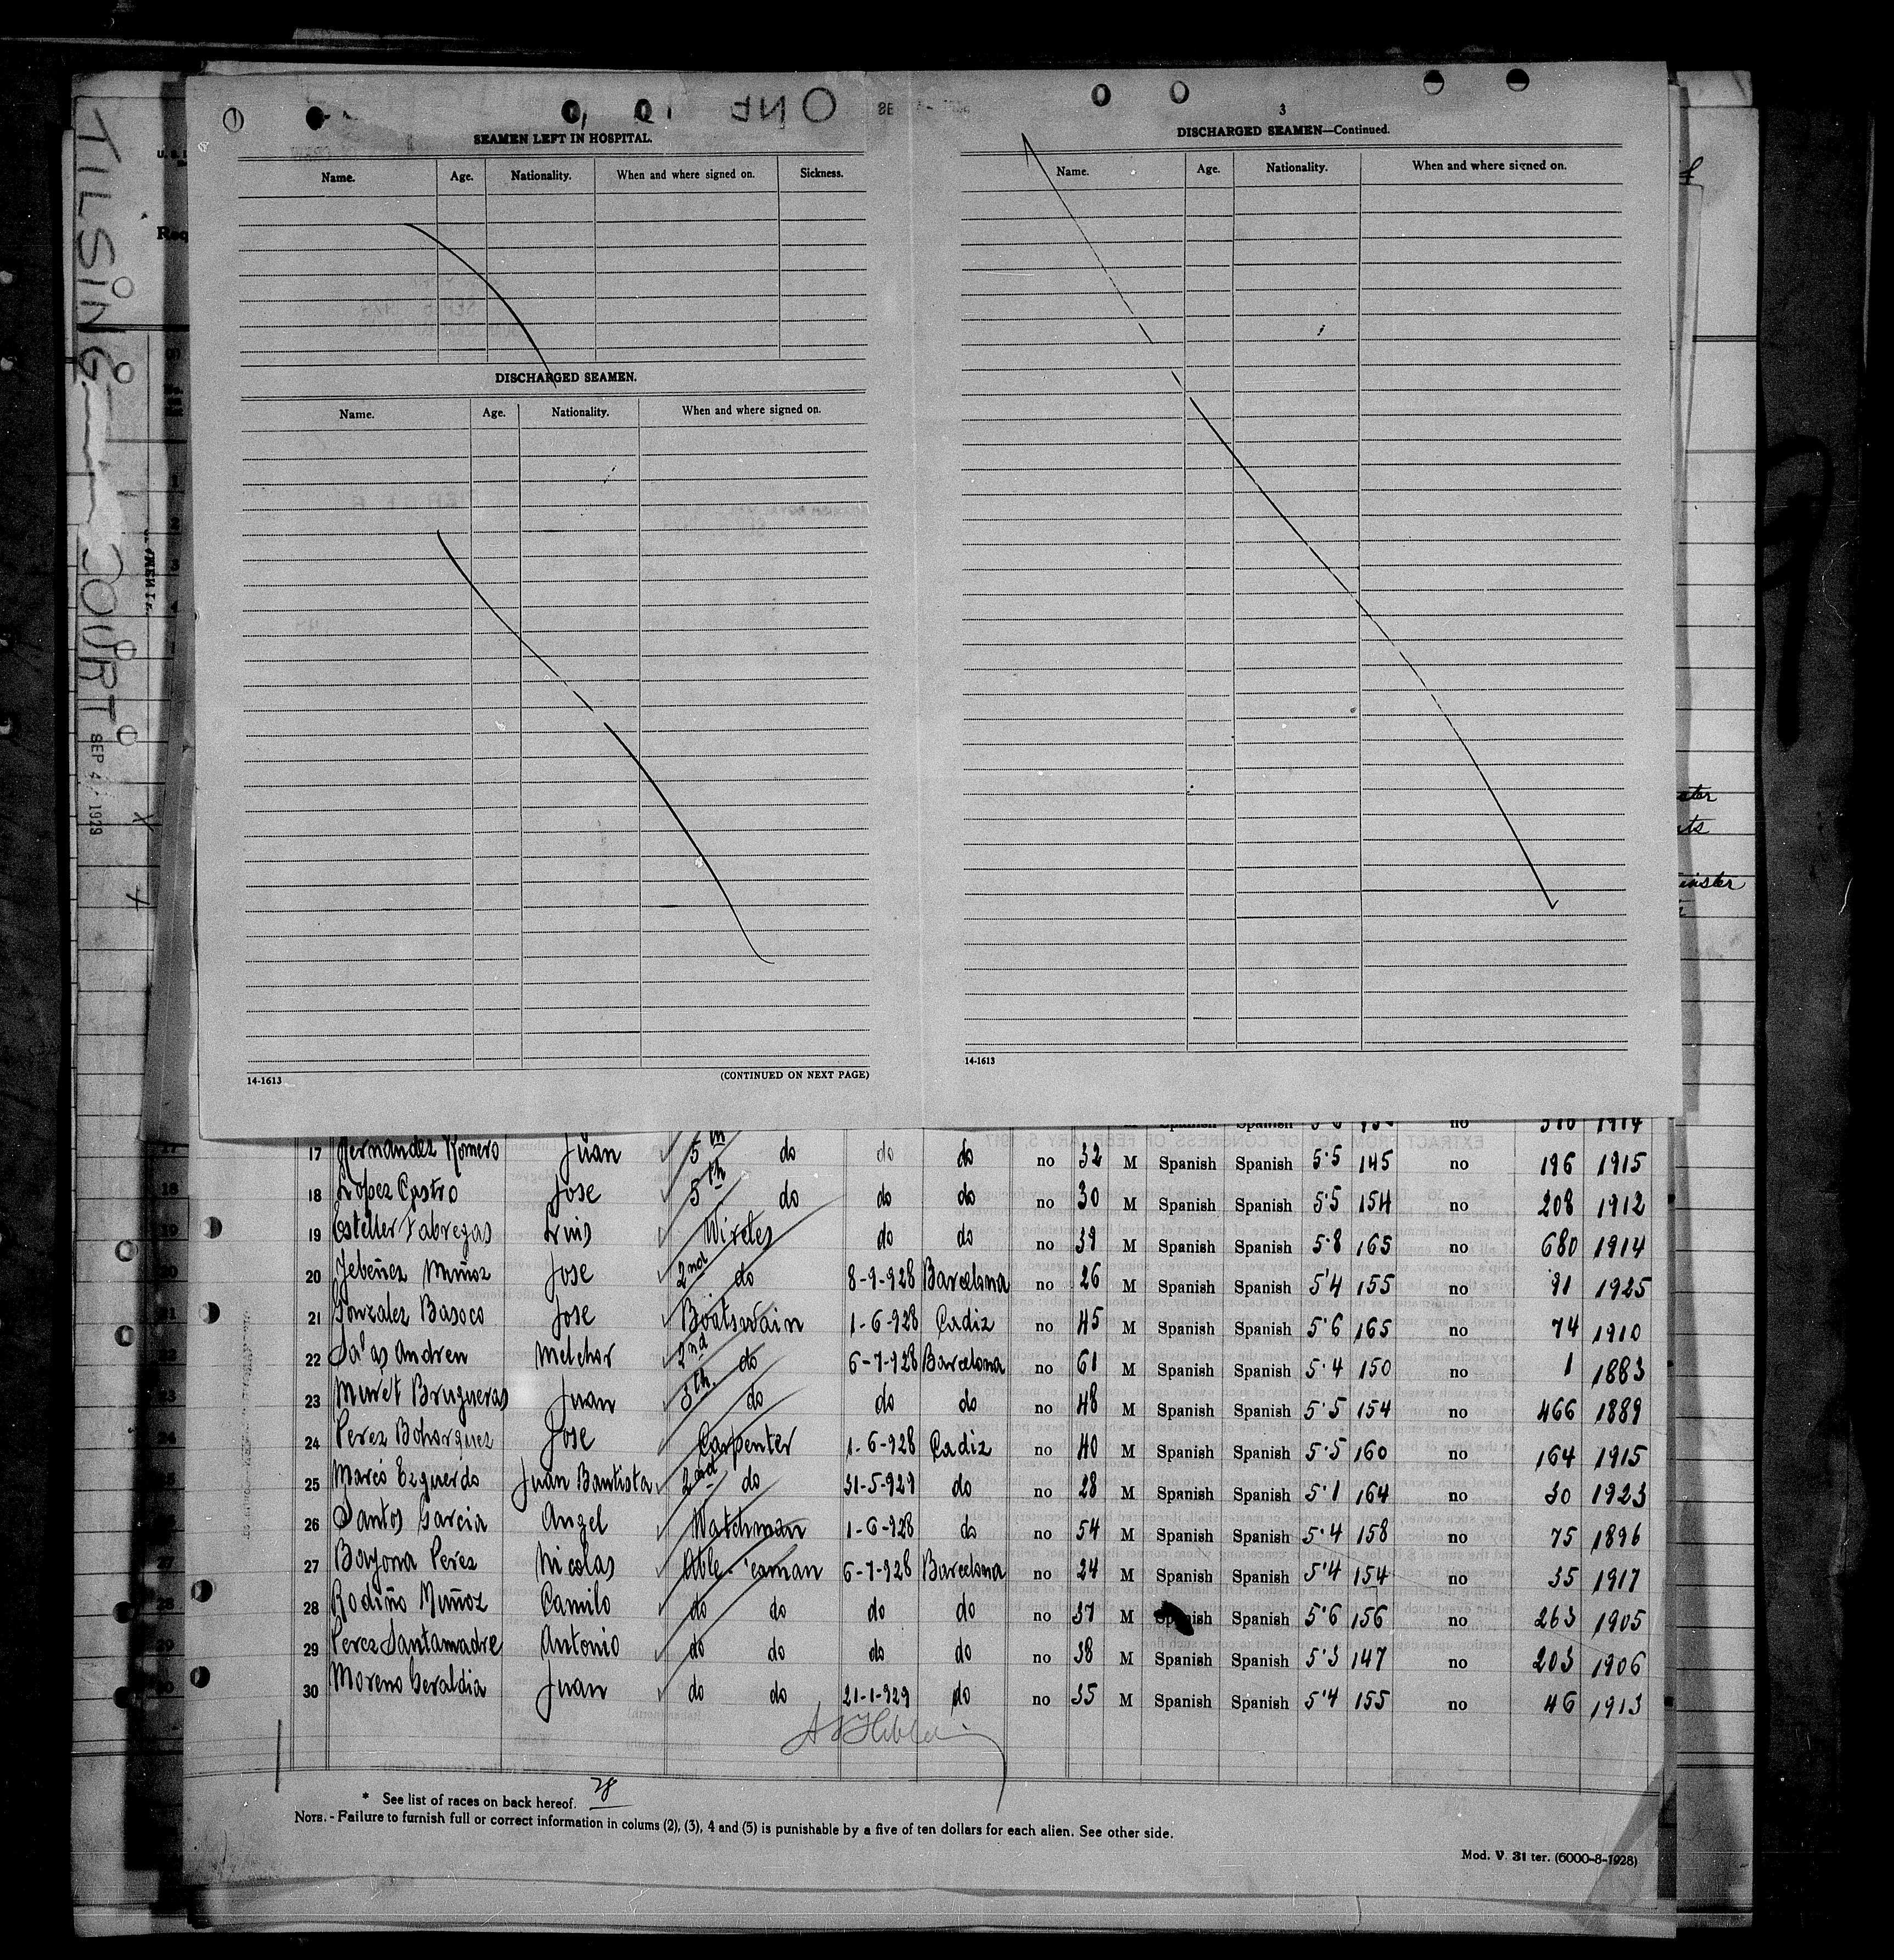 TILSINGTON COURT SEP 4 1929
SEAMEN LEFT IN HOSPITAL.
Name. Age. Nationality. When and where signed on. Sickness.
DISCHARGED SEAMEN.
Name. Age. Nationality. When and where signed on.
14-1613 (CONTINUED ON NEXT PAGE)
3
DISCHARGED SEAMEN—Continued.
Name. Age. Nationality. When and where signed on.
14-1613
17 Hernandez Romero Juan 5th do do do no 32 M Spanish Spanish 5·5 145 no 196 1915
18 Lopez Castro Jose 5th do do do no 30 M Spanish Spanish 5·5 154 no 208 1912
19 Esteller Fabregas Luis Wireles do do no 39 M Spanish Spanish 5·8 165 no 680 1914
20 Jebeñez Muñoz Jose 2nd do 8-9-928 Barcelona no 26 M Spanish Spanish 5'4 155 no 91 1925
21 Gonzalez Basoco Jose Boatswain 1-6-928 Cadiz no 45 M Spanish Spanish 5'6 165 no 74 1910
22 Salas Andreu Melchor 2nd do 6-7-928 Barcelona no 61 M Spanish Spanish 5·4 150 no 1 1883
23 Muret Brugueras Juan 3th. do do do no 48 M Spanish Spanish 5·5 154 no 466 1889
24 Perez Bohorquez Jose Carpenter 1-6-928 Cadiz no 40 M Spanish Spanish 5·5 160 no 164 1915
25 Marco Ezquerdo Juan Bautista 2nd do 31-5-929 do no 28 M Spanish Spanish 5·1 164 no 30 1923
26 Santos Garcia Angel Watchman 1-6-928 do no 54 M Spanish Spanish 5·4 158 no 75 1896
27 Bayona Perez Nicolas Able seaman 6-7-928 Barcelona no 24 M Spanish Spanish 5'4 154 no 35 1917
28 Rodiño Muñoz Camilo do do do do no 37 M Spanish Spanish 5'6 156 no 263 1905
29 Perez Santamadre Antonio do do do do no 38 M Spanish Spanish 5'3 147 no 203 1906
30 Moreno Geraldia Juan do do 21-1-929 do no 35 M Spanish Spanish 5'4 155 no 46 1913
* See list of races on back hereof. 28
NOTE. - Failure to furnish full or correct information in colums (2), (3), 4 and (5) is punishable by a five of ten dollars for each alien. See other side.
Mod. V. 31 ter. (6000-8-1928)